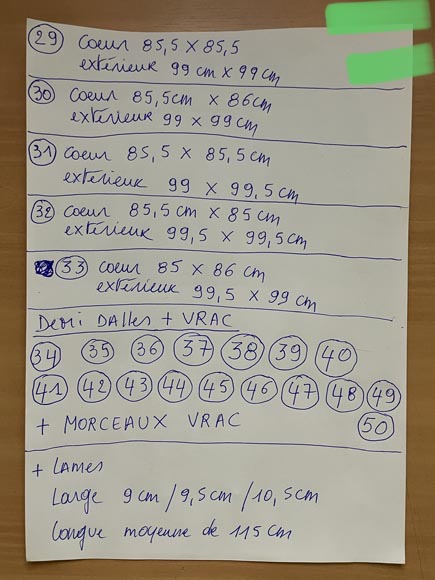 29 Coeur 85,5 X 85,5
extérieur 99 cm x 99 cm
30 Coeur 85,5cm x 86cm
extérieux 99 x 99cm
31 Coeur 85,5 x 85,5cm
extérieur 99 x 99,5cm
32 Coeur 85,5 cm x 85 cm
extérieur 99,5 x 99,5cm
33 Coeur 85 x 86 cm
extérieur 99,5 x 99 cm
Demi DALLES + VRAC
34 35 36 37 38 39 40
41 42 43 44 45 46 47 48 49
+ MORCEAUX VRAC 50
+ LAMES
Large 9 cm / 9,5cm / 10,5cm
Longue moyenne de 115 cm